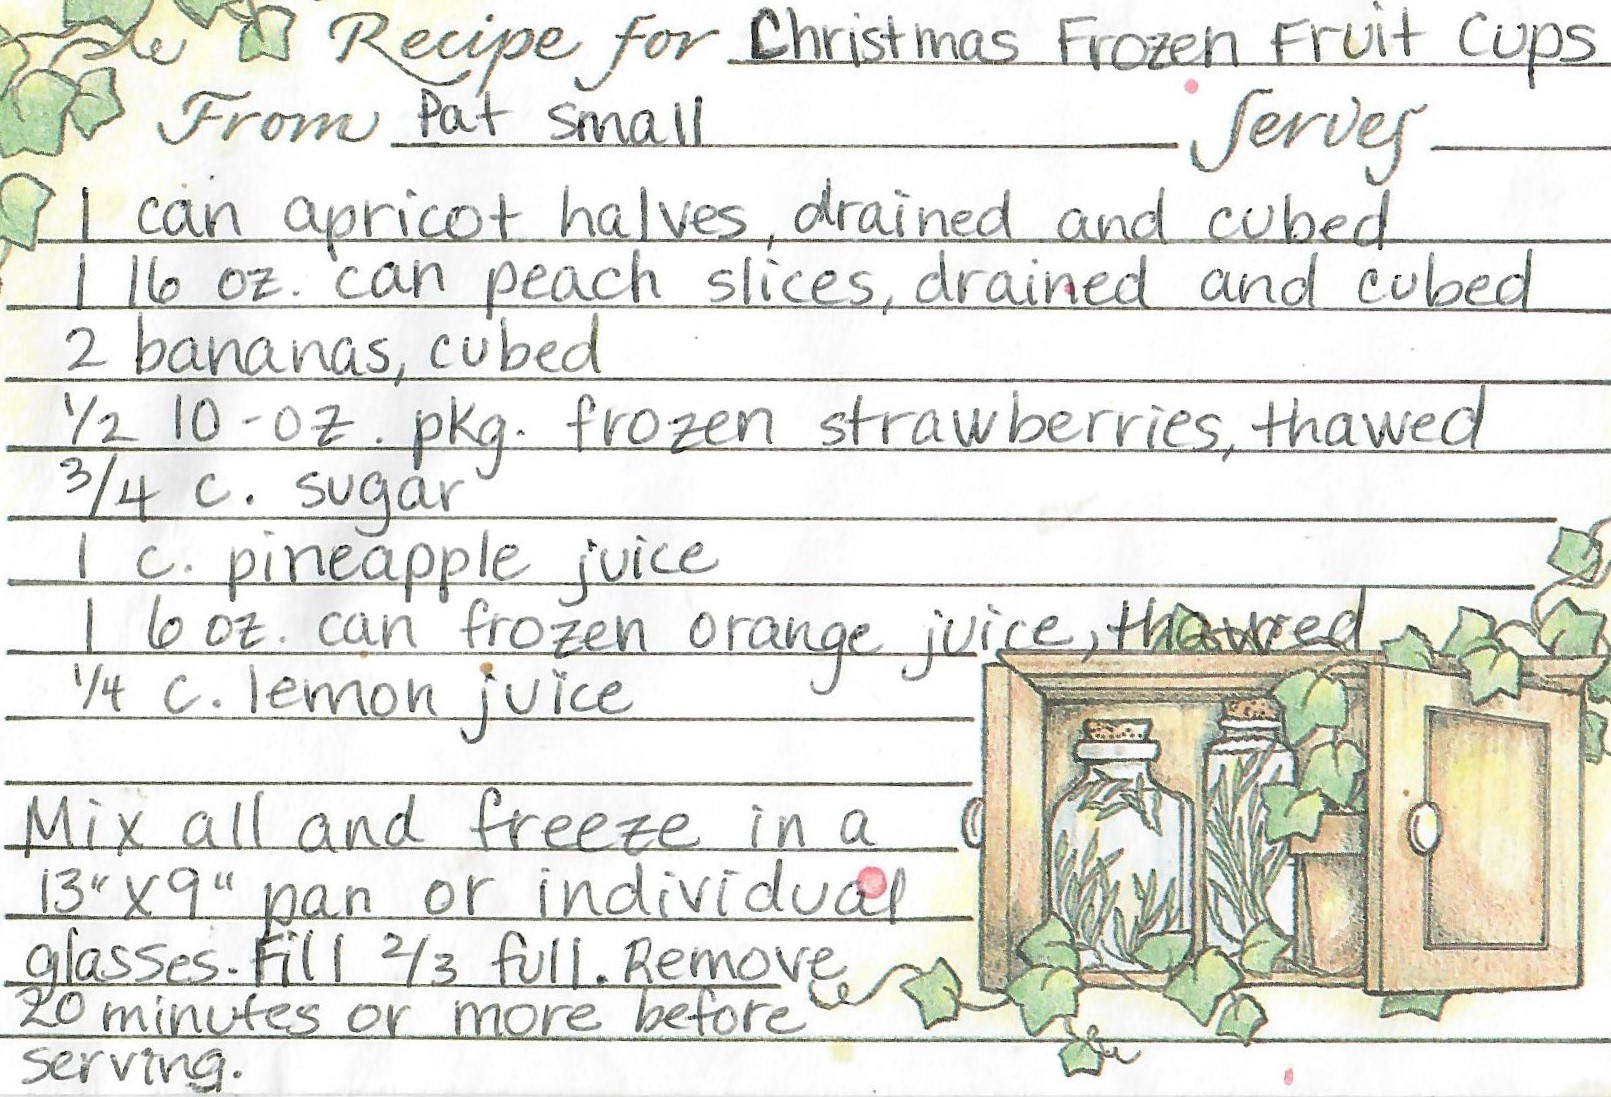 Recipe for Christmas Frozen Fruit Cups
From Pat Small Serves
1 can apricot halves, drained and cubed
1 16 oz. can peach slices, drained and cubed
2 bananas, cubed
1/2 10-oz. pkg. frozen strawberries, thawed
3/4 c. sugar
1 c. pineapple juice
1 6 oz. can frozen orange juice, thawed
1/4 c. lemon juice
Mix all and freeze in a
13" x 9" pan or individual
glasses. Fill 2/3 full. Remove
20 minutes or more before
serving.